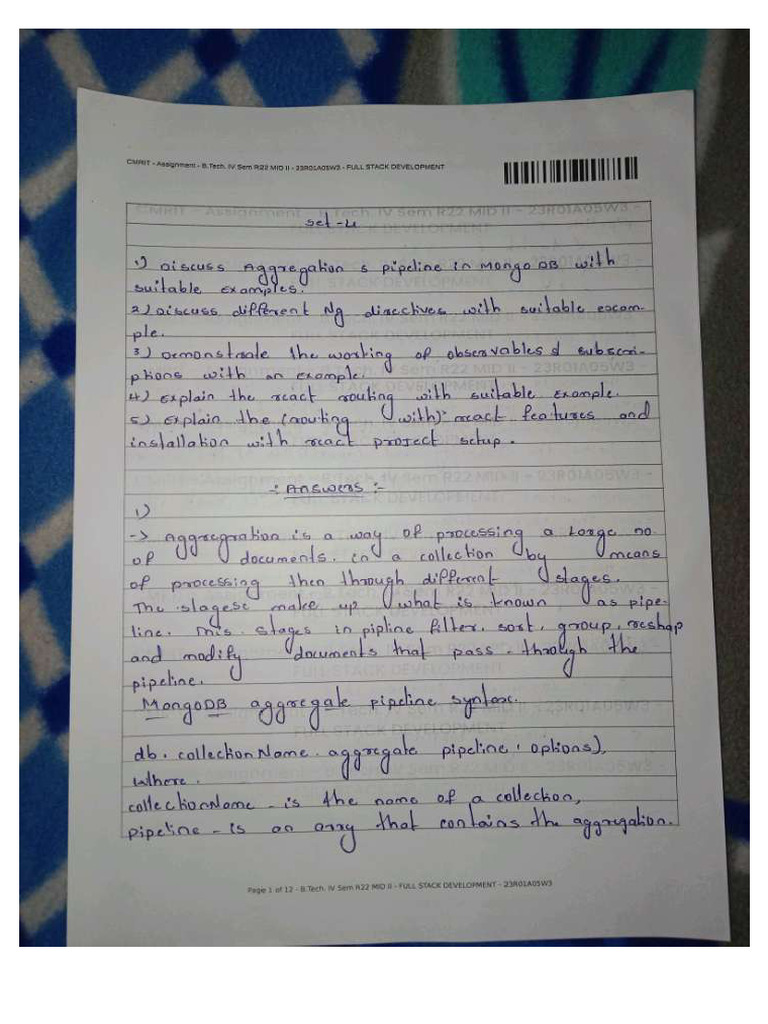 CMRIT - Assignment - B.Tech. IV Sem R22 MID II - 23R01A05W3 - FULL STACK DEVELOPMENT
Set-4
1) Discuss Aggregation & pipeline in MongoDB with
suitable examples.
2) Discuss different Ng directives with suitable exam-
ple.
3) Demonstrate the working of observables & subscri-
ptions with an example.
4) Explain the react routing with suitable example.
5) Explain the (routing with) react features and
installation with react project setup.
:- Answers :-
1)
-> Aggregration is a way of processing a Large no.
of documents. in a collection by means
of processing then through different stages.
The stagese make up what is known as pipe-
line. This stages in pipline filter, sort, group, reshap
and modify documents that pass through the
pipeline.
MongoDB aggregate pipeline syntax.
db. collectionName. aggregate pipeline, options),
where.
collectionName - is the name of a collection,
pipeline - is an arry that contains the aggregation.
Page 1 of 12 - B.Tech. IV Sem R22 MID II - FULL STACK DEVELOPMENT - 23R01A05W3